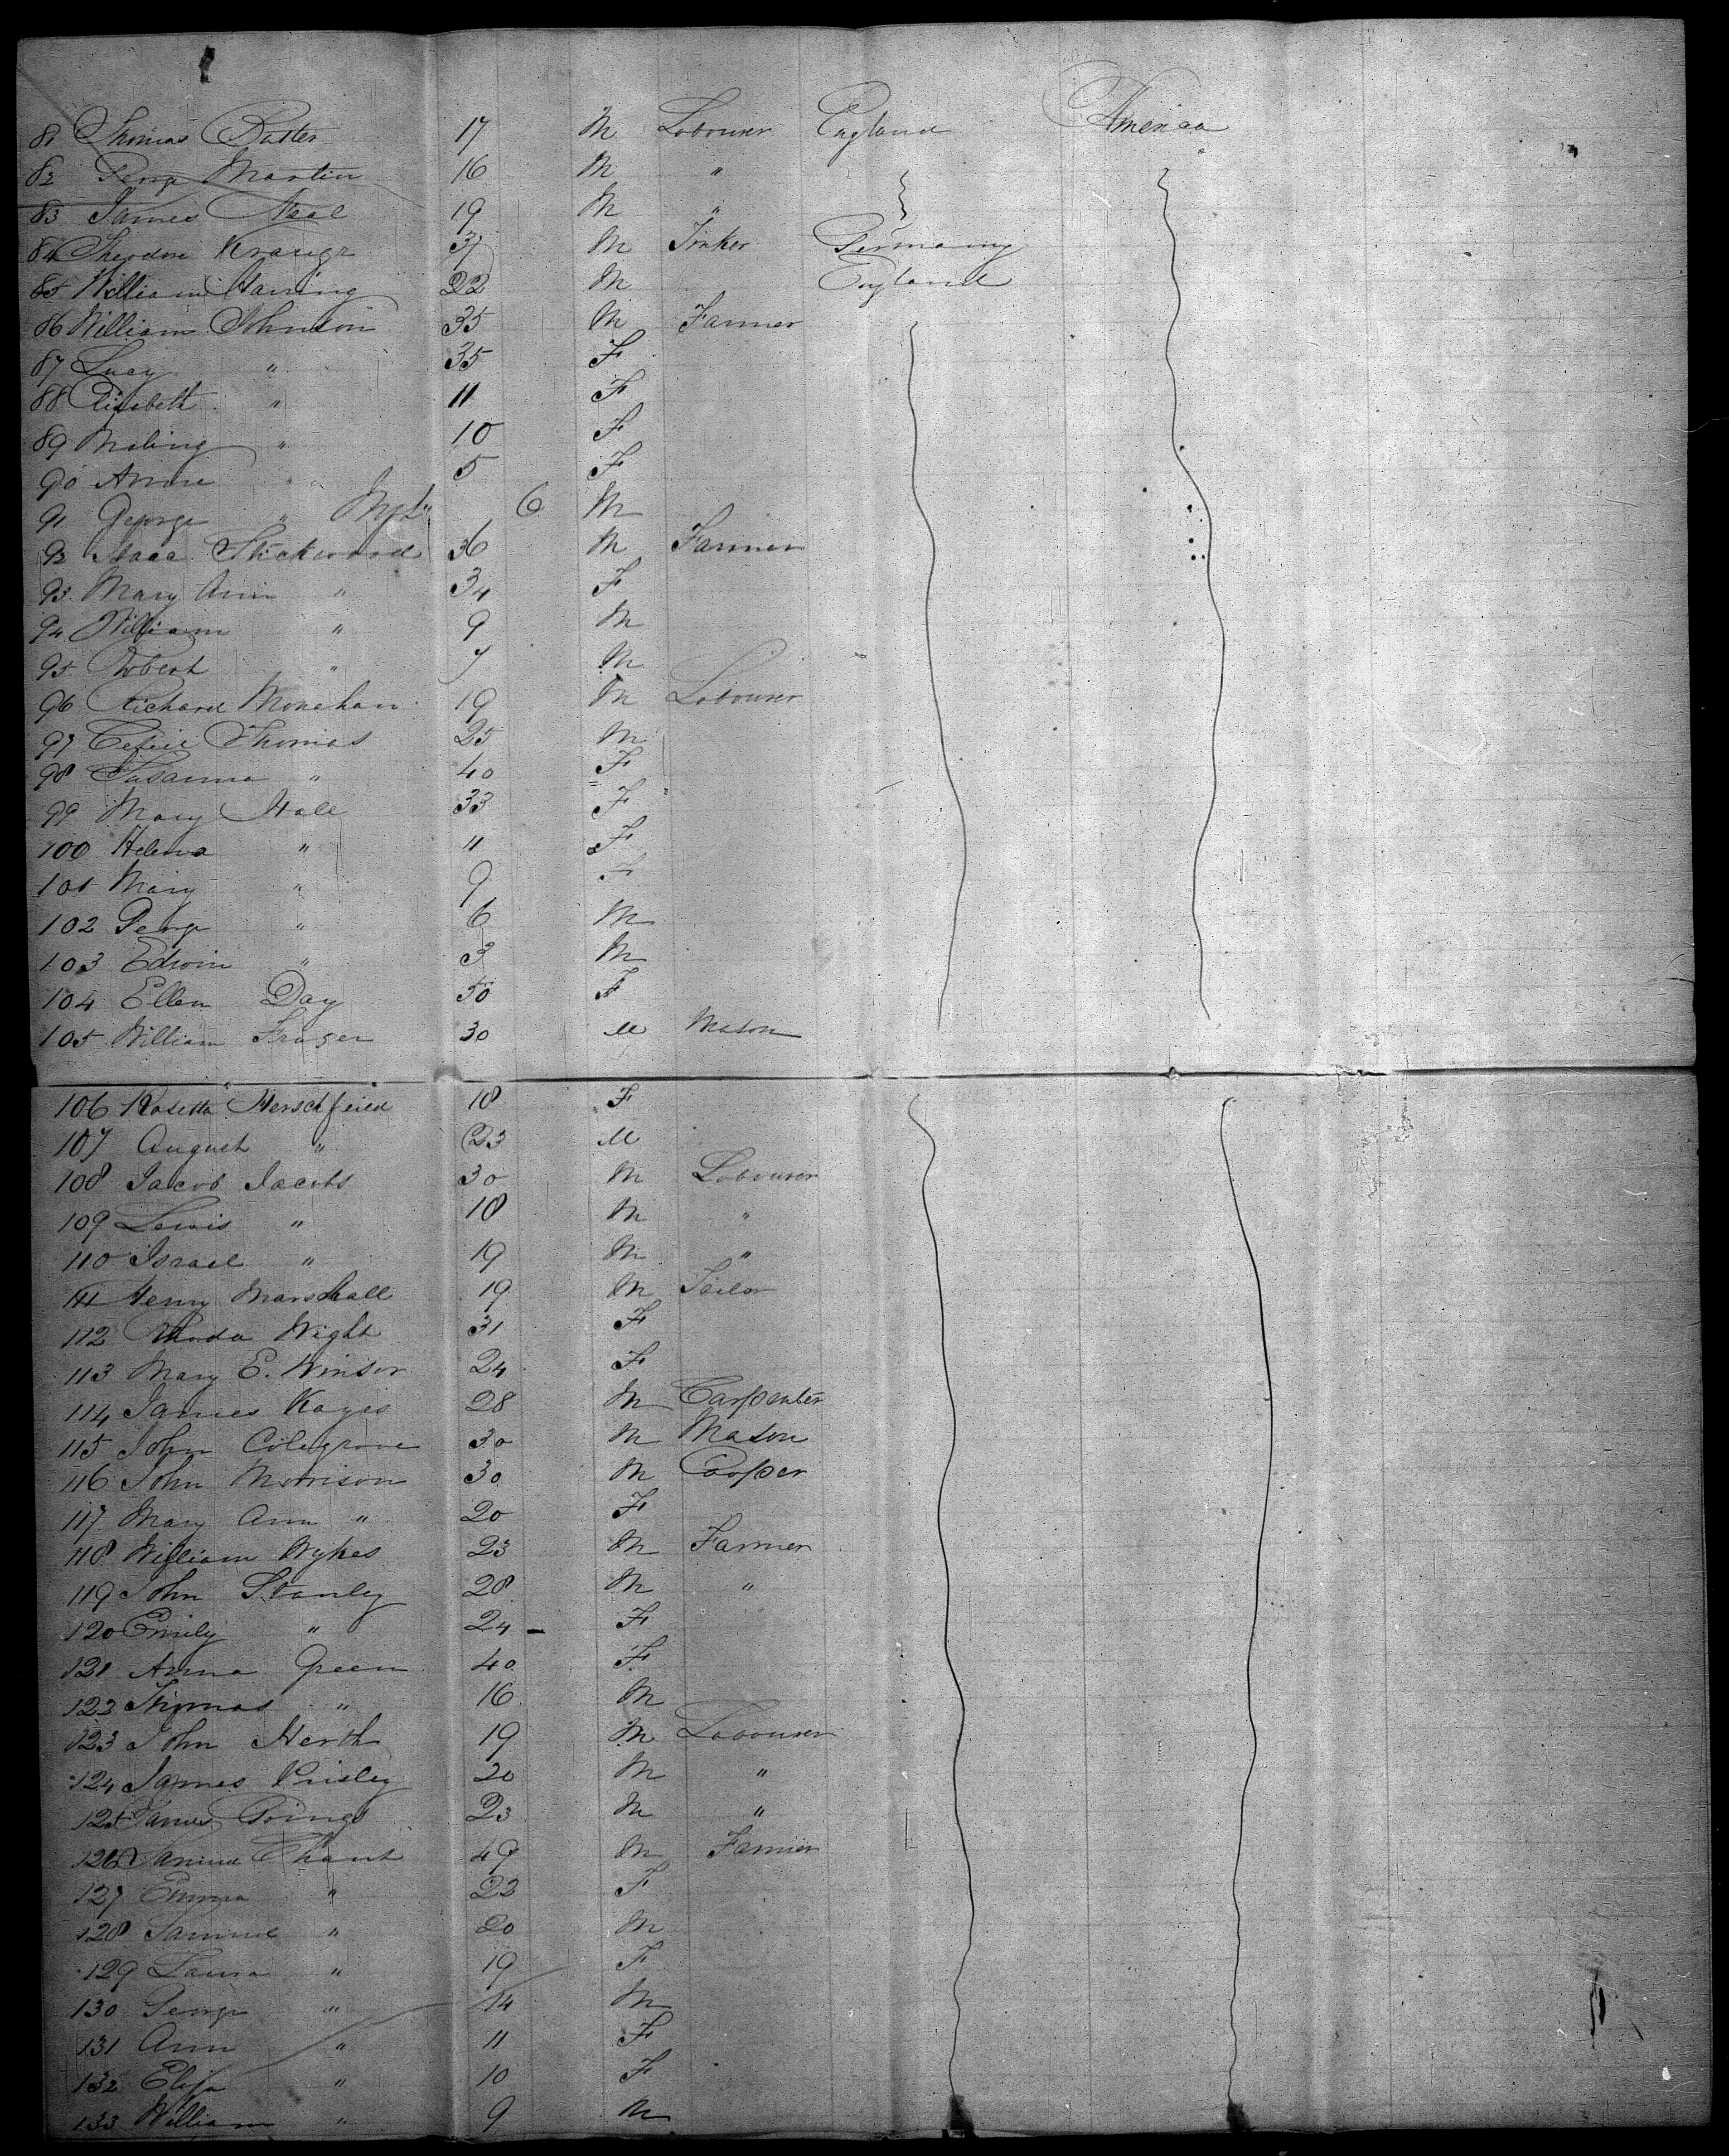 81 Thomas 17 M Labourer England America
82 George Martin 16 M "
83 James 19 M "
84 Theodore 37 M Tinker Germany
85 William 22 M England
86 William Johnson 35 M Farmer
87 Lucy " 35 F
88 Elizabeth " 11 F
89 " 10 F
90 Annie " 5 F
91 George " Inft 6 M
92 Isaac Stickwood 36 M Farmer
93 Mary Ann " 34 F
94 William " 9 M
95 Robert " 7 M
96 Richard Monahan 19 M Labourer
97 Thomas 25 M
98 Susanna " 40 F
99 Mary Hall 33 F
100 Helena " 11 F
101 Mary " 9 F
102 George " 6 M
103 Edwin " 3 M
104 Ellen Day 50 F
105 William Frazer 30 M Mason
106 Rosetta Herschfeild 18 F
107 August " 23 M
108 Jacob Jacobs 30 M Labourer
109 Lewis " 18 M "
110 Israel " 19 M "
111 Henry Marshall 19 M
112 Rhoda Wight 31 F
113 Mary E. Winsor 24 F
114 James Kayes 28 M Carpenter
115 John Colegrove 30 M Mason
116 John Morrison 30 M Cooper
117 Mary Ann " 20 F
118 William Wykes 23 M Farmer
119 John Stanley 28 M "
120 Emily " 24 F
121 Anna Green 40 F
122 Thomas " 16 M
123 John Herth 19 M Labourer
124 James 20 M "
125 James 23 M "
126 Samuel Chant 49 M Farmer
127 Emma " 22 F
128 Samuel " 20 M
129 Laura " 19 F
130 George " 14 M
131 Ann " 11 F
132 Eliza " 10 F
133 William " 9 M